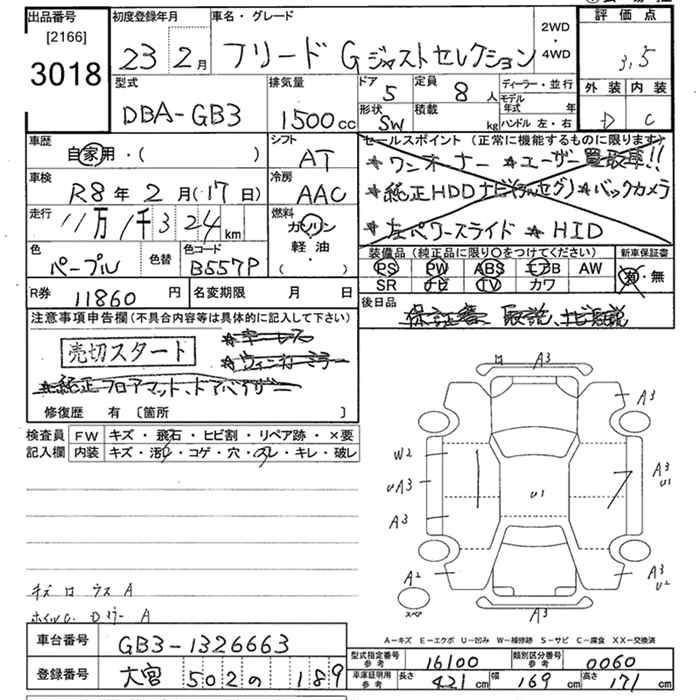 出品番号 初度登録年月 車名・グレード 評価点
[2166]
3018
23 2月 フリード G ジャストセレクション 2WD・4WD 3.5
型式 排気量 ドア 定員 ディーラー・並行 外装 内装
DBA-GB3 1500cc 5 8人 モデル年式 年 D C
形状 積載 ハンドル 左・右
SW kg
車歴 シフト セールスポイント (正常に機能するものに限ります)
自家用・( ) AT ★ワンオーナー ★ユーザー買取車!!
車検 冷房 ★純正HDDナビ(ワンセグ)★バックカメラ
R8年2月(17日) AAC ★左パワースライド ★HID
走行 燃料
11万1千324km ガソリン
軽油・
( )
色 色替 色コード 装備品 (純正品に限り〇をつけてください) 新車保証書
パープル B557P PS PW ABS エアB AW 有・無
SR ナビ TV カワ
R券 11860円 名変期限 月 日 後日品
保証書 取説 ナビ取説
注意事項申告欄(不具合内容等は具体的に記入して下さい)
売切スタート
★キーレス
★ウィンカーミラー
★純正フロアマット、ドアバイザー
修復歴 有 [箇所 ]
検査員 FW キズ・飛石・ヒビ割・リペア跡・×要
記入欄 内装 キズ・汚レ・コゲ・穴・スレ・キレ・破レ
A3
A3
W2
UA3
A3
U1
A3
U1
A2
A3
U2
A3
スペア
A-キズ E-エクボ U-凹み W-補修跡 S-サビ C-腐食 XX-交換済
車台番号 GB3-1326663
登録番号 大宮 502 の 189
型式指定番号 参考 16100 類別区分番号 参考 0060
車庫証明用 参考 長さ 421cm 幅 169cm 高さ 171cm